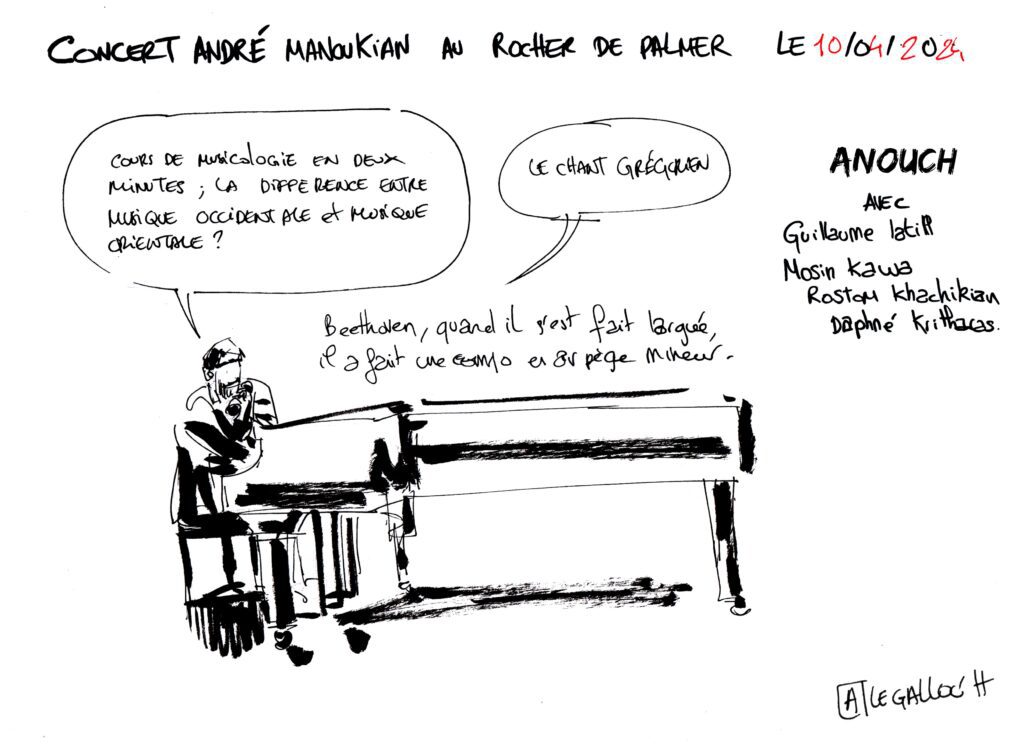 CONCERT ANDRÉ MANOUKIAN AU ROCHER DE PALMER LE 10/04/2024
COURS DE MUSICOLOGIE EN DEUX
MINUTES ; LA DIFFERENCE ENTRE
MUSIQUE OCCIDENTALE et MUSIQUE
ORIENTALE ?
LE CHANT GRÉGORIEN
Beethoven, quand il s'est fait larguée,
il a fait une compo en arpège mineur.
ANOUCH
AVEC
Guillaume latil
Mosin Kawa
Rostom Khachikian
Daphné Kritharas.
A LE GALLOC'H